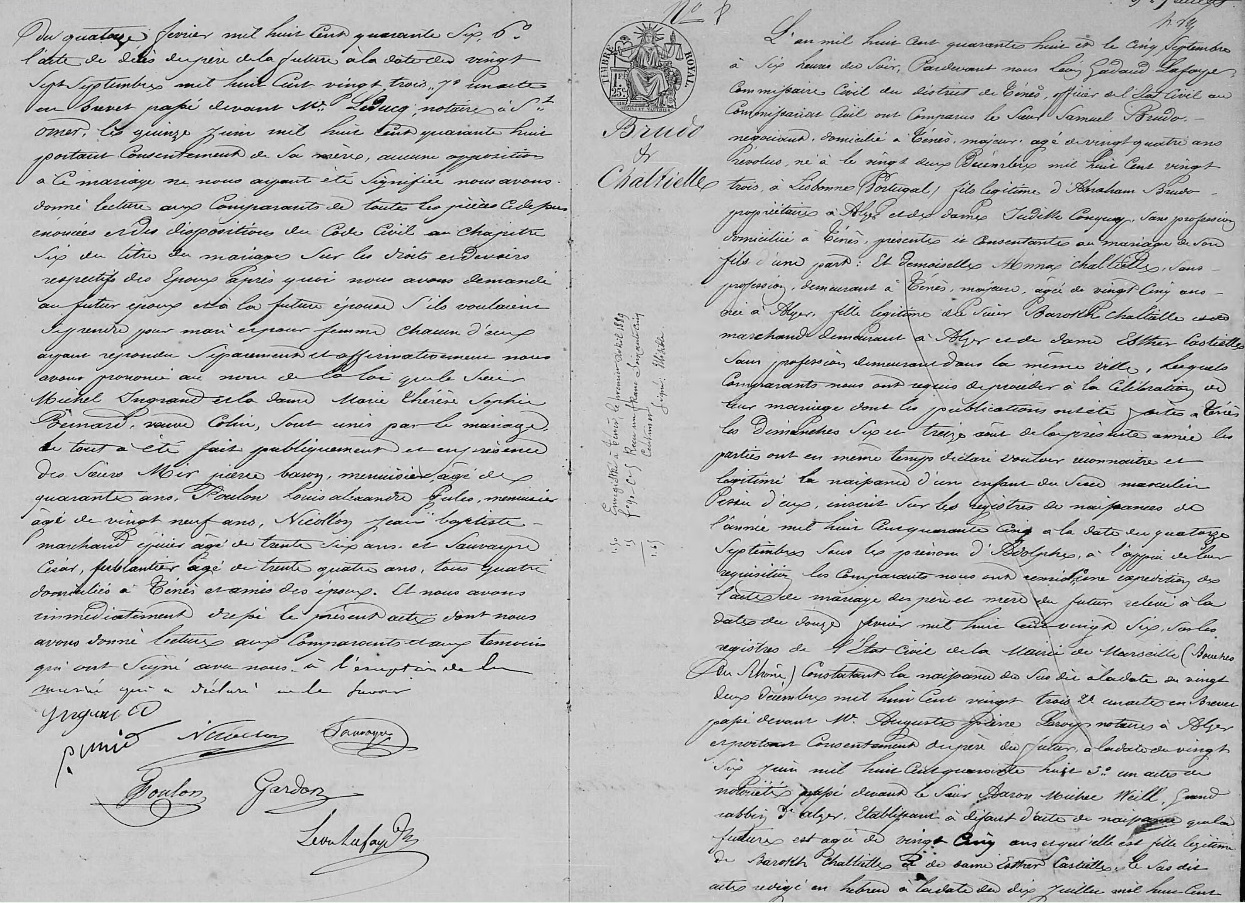 du quatorze février mil huit Cent quarante Six, 6o
l'acte de décès du père de la future à la date du vingt
Sept Septembre mil huit Cent vingt trois, 7o un acte
en brevet passé devant Me Leducq, notaire à St
omer, le quinze Juin mil huit Cent quarante huit
portant Consentement de Sa mère, aucune opposition
à Ce mariage ne nous ayant été Signifiée nous avons
donné lecture aux Comparants de toutes les pièces Ci dessus
énoncées et des dispositions du Code Civil au Chapitre
Six du titre du mariage Sur les droits et devoirs
respectifs des Epoux après quoi nous avons demandé
au futur époux et à la future épouse S'ils voulaient
Se prendre pour mari et pour femme chacun d'eux
ayant répondu Séparément et affirmativement nous
avons prononcé au nom de la loi que le Sieur
Michel Ingrand et la dame Marie Thérèse Sophie
Bernard, veuve Colin, Sont unis par le mariage
le tout à été fait publiquement et en présence
des Sieurs Mir pierre, menuisier, agé de
quarante ans, Poulon Louis alexandre Jules, menuisier
âgé de vingt neuf ans, Nicollon Jean baptiste
marchand épicier âgé de trente Six ans. et Sauvayre
César, ferblantier agé de trente quatre ans, tous quatre
domiciliés à Ténès et amis des époux. Et nous avons
immédiatement dressé le présent acte dont nous
avons donné lecture aux Comparants et aux témoins
qui ont Signé avec nous à l'exception de la
mariée qui a déclaré ne le Savoir
Nicollon Sauvayre
Poulon Gardon
Leon Lafaye
No 8
TIMBRE ROYAL
1 Fr 25c
Brudo
&
Chaltielle
Enregistré à Ténès le premier
Reçu un franc Soixante Cinq
Centimes
Signé
L'an mil huit Cent quarante huit et le Cinq Septembre
à Six heures du Soir, Pardevant nous Léon Gadaud Lafaye
Commissaire Civil du district de Ténès, officier de l'état Civil au
Commissariat Civil ont Comparus le Sieur Samuel Brudo
négociant, domicilié à Ténès, majeur, agé de vingt quatre ans
révolus, né à le vingt deux Décembre mil huit Cent vingt
trois, à Lisbonne (Portugal) fils légitime d'Abraham Brudo
propriétaire à Alger et de dame Judith, Sans profession
domiciliée à Ténès, présente et Consentante au mariage de Son
fils d'une part: Et Demoiselle Anna Chaltielle, Sans
profession, demeurant à Ténès, majeure, agée de vingt Cinq ans
née à Alger, fille légitime du Sieur Barokh Chaltielle
marchand demeurant à Alger et de dame Esther Castielle
Sans profession demeurant dans la même ville, lesquels
Comparants nous ont requis de procéder à la Célébration de
leur mariage dont les publications ont été faites à Ténès
les Dimanches Six et treize août de la présente année les
parties ont en même temps déclaré vouloir reconnaitre et
légitimé la naissance d'un enfant du Sexe masculin
issu d'eux, inscrit Sur les registres de naissances de
l'année mil huit Cent quarante Cinq à la date du quatorze
Septembre Sous le prénom d'Adolphe, à l'appui de leur
réquisition, les Comparants nous ont remis une expédition de
l'acte de mariage des père et mère du futur relevé à la
date du douze février mil huit Cent vingt Six, Sur les
registres de l'Etat Civil de la Mairie de Marseille (Bouches
du Rhône) Constatant la naissance du Sus dit à la date du vingt
deux décembre mil huit Cent vingt trois 2o un acte en Brevet
passé devant Me Auguste notaire à Alger
et portant Consentement du père du futur, à la date du vingt
Six Juin mil huit Cent quarante huit 3o un acte de
notoriété passé devant le Sieur Aaron Michel Weill, Grand
rabbin d'Alger, Etablissant à défaut d'acte de naissance que la
future est agée de vingt Cinq ans et qu'elle est fille légitime
de Barokh Chaltielle & de dame Esther Castielle, le Sus dit
acte rédigé en hébreu à la date du dix Juillet mil huit Cent